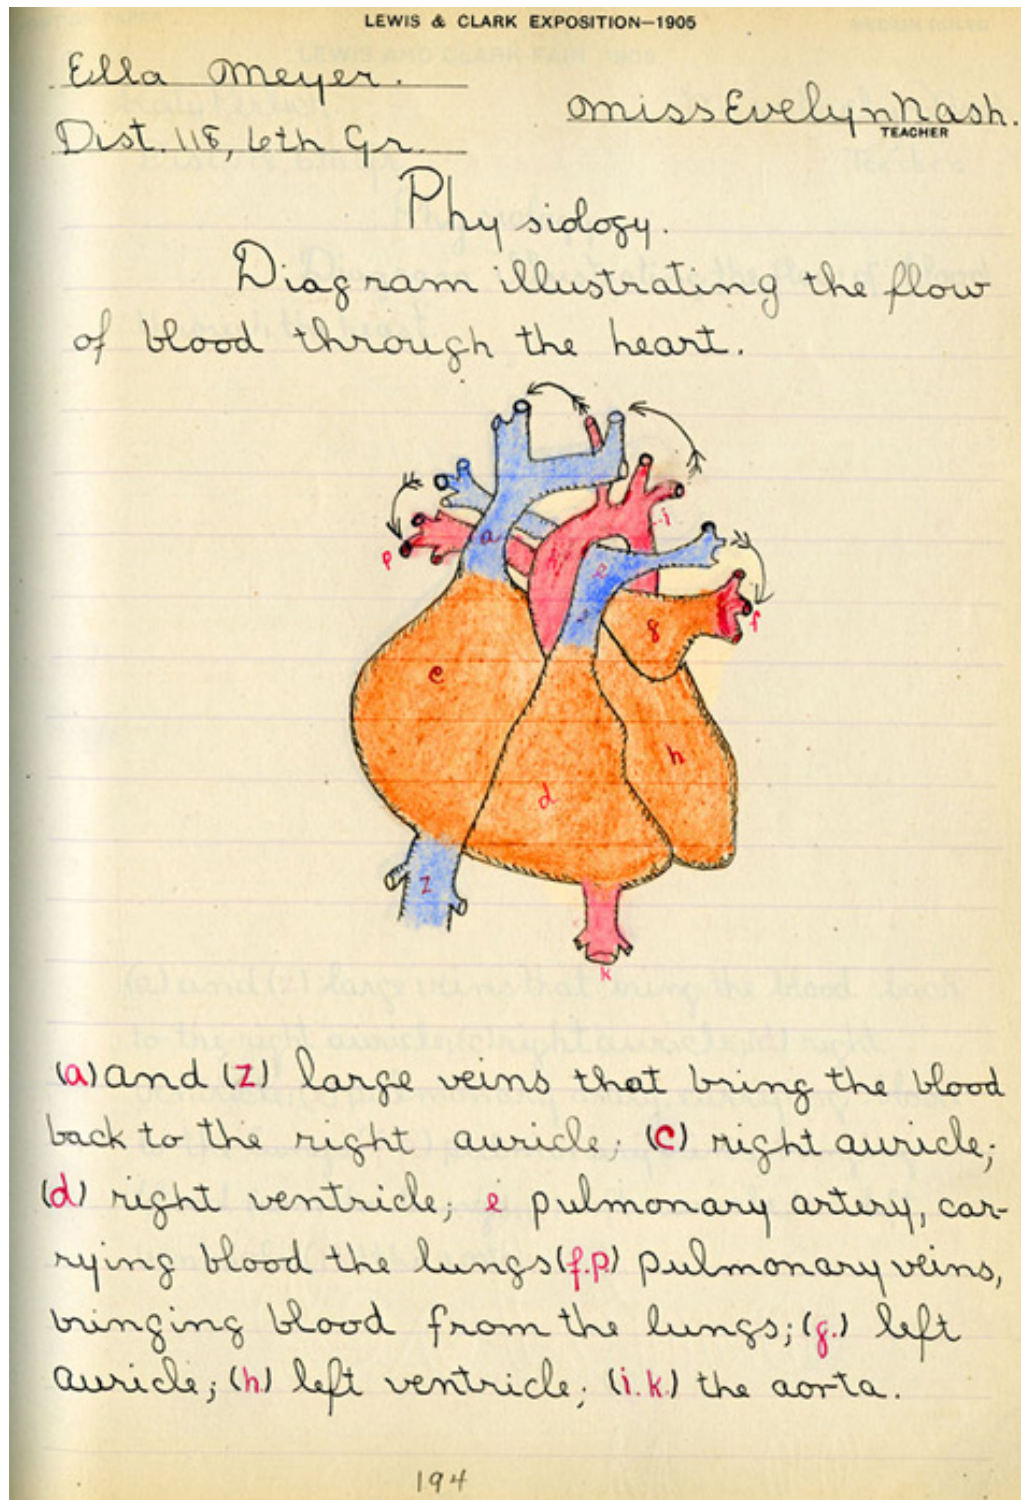 LEWIS & CLARK EXPOSITION—1905
Ella Meyer.
Miss Evelyn Nash.
TEACHER
Dist. 118, 6th Gr.
Physiology.
Diagram illustrating the flow
of blood through the heart.
a
h
i
p
e
f
g
c
h
d
z
k
(a) and (z) large veins that bring the blood
back to the right auricle; (c) right auricle;
(d) right ventricle; e pulmonary artery, car-
rying blood the lungs (f.p.) pulmonary veins,
bringing blood from the lungs; (g.) left
auricle; (h.) left ventricle; (i.k.) the aorta.
194